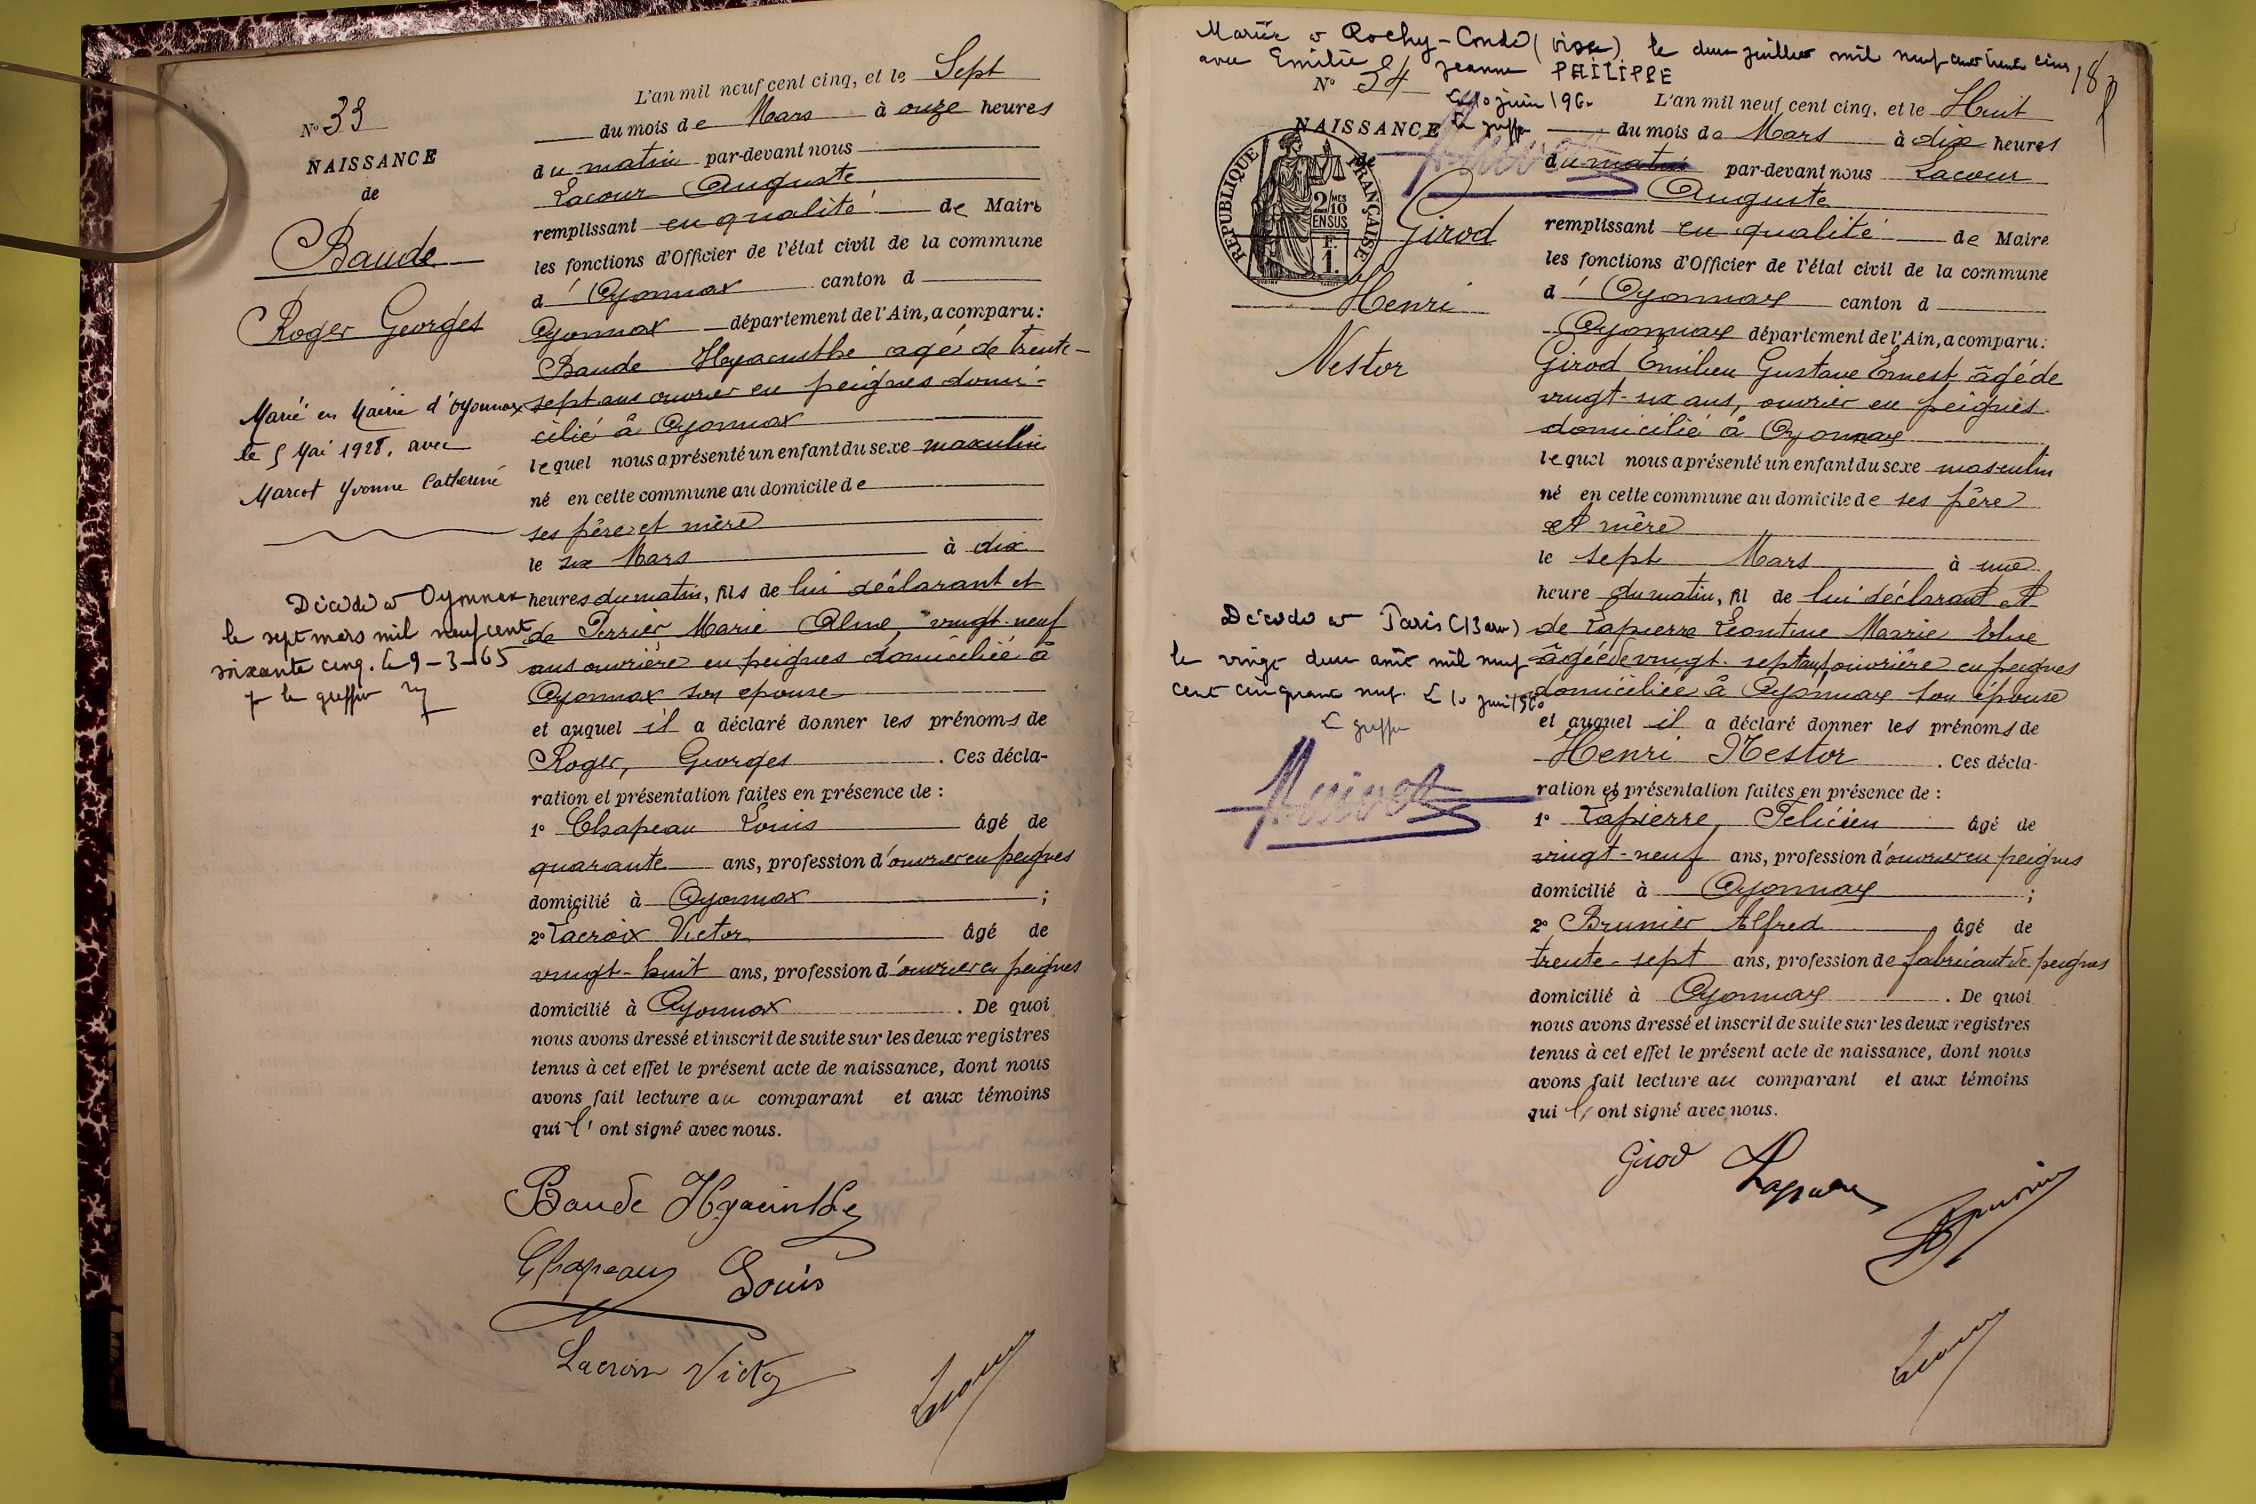 N° 33
NAISSANCE
de
Baude
Roger Georges
Marié en Mairie d'Oyonnax
le 5 Mai 1928, avec
Marcot Yvonne Catherine
Décédé à Oyonnax
le sept mars mil neuf cent
soixante cinq. Le 9-3-65
le greffier
L'an mil neuf cent cinq, et le Sept
du mois de Mars à onze heures
du matin par-devant nous
Lacour Auguste
remplissant en qualité de Maire
les fonctions d'Officier de l'état civil de la commune
d'Oyonnax canton d
Oyonnax département de l'Ain, a comparu:
Baude Hyacinthe agé de trente-
sept ans ouvrier en peignes domi-
cilié à Oyonnax
lequel nous a présenté un enfant du sexe masculin
né en cette commune au domicile de
ses père et mère
le six Mars à dix
heures du matin, fils de lui déclarant et
de Perrier Marie Alme, vingt-neuf
ans ouvrière en peignes domiciliée à
Oyonnax son epouse
et auquel il a déclaré donner les prénoms de
Roger, Georges. Ces décla-
ration et présentation faites en présence de :
1° Chapeau Louis âgé de
quarante ans, profession d'ouvrier en peignes
domicilié à Oyonnax ;
2° Lacroix Victor âgé de
vingt-huit ans, profession d'ouvrier en peignes
domicilié à Oyonnax. De quoi
nous avons dressé et inscrit de suite sur les deux registres
tenus à cet effet le présent acte de naissance, dont nous
avons fait lecture au comparant et aux témoins
qui l' ont signé avec nous.
Baude Hyacinthe
Chapeau Louis
Lacroix Victor
Lacour
Mariée à Rochy-Condé (Oise) le deux juillet mil neuf cent trente cinq
avec Emilie Jeanne PHILIPPE
Le 10 juin 1960
Le greffier
18
N° 34
NAISSANCE
de
Girod
Henri
Nestor
REPUBLIQUE FRANÇAISE
2/10 MES
EN SUS
F.
1.
Décédé à Paris (13 arr)
le vingt deux août mil neuf
cent cinquante neuf. Le 10 juin 1960
Le greffier
L'an mil neuf cent cinq, et le Huit
du mois de Mars à dix heures
du matin par-devant nous Lacour
Auguste
remplissant en qualité de Maire
les fonctions d'Officier de l'état civil de la commune
d'Oyonnax canton d
Oyonnax département de l'Ain, a comparu:
Girod Emilien Gustave Ernest âgé de
vingt-six ans, ouvrier en peignes
domicilié à Oyonnax
lequel nous a présenté un enfant du sexe masculin
né en cette commune au domicile de ses père
et mère
le sept Mars à une
heure du matin, fil de lui déclarant et
de Lapierre Léontine Marie Elise
âgée de vingt-sept ans, ouvrière en peignes
domiciliée à Oyonnax son épouse
et auquel il a déclaré donner les prénoms de
Henri Nestor. Ces décla-
ration et présentation faites en présence de :
1° Lapierre, Felicien âgé de
vingt-neuf ans, profession d'ouvrier en peignes
domicilié à Oyonnax ;
2° Brunier Alfred, âgé de
trente-sept ans, profession de fabricant de peignes
domicilié à Oyonnax. De quoi
nous avons dressé et inscrit de suite sur les deux registres
tenus à cet effet le présent acte de naissance, dont nous
avons fait lecture au comparant et aux témoins
qui l' ont signé avec nous.
Girod Lapierre
Brunier
Lacour